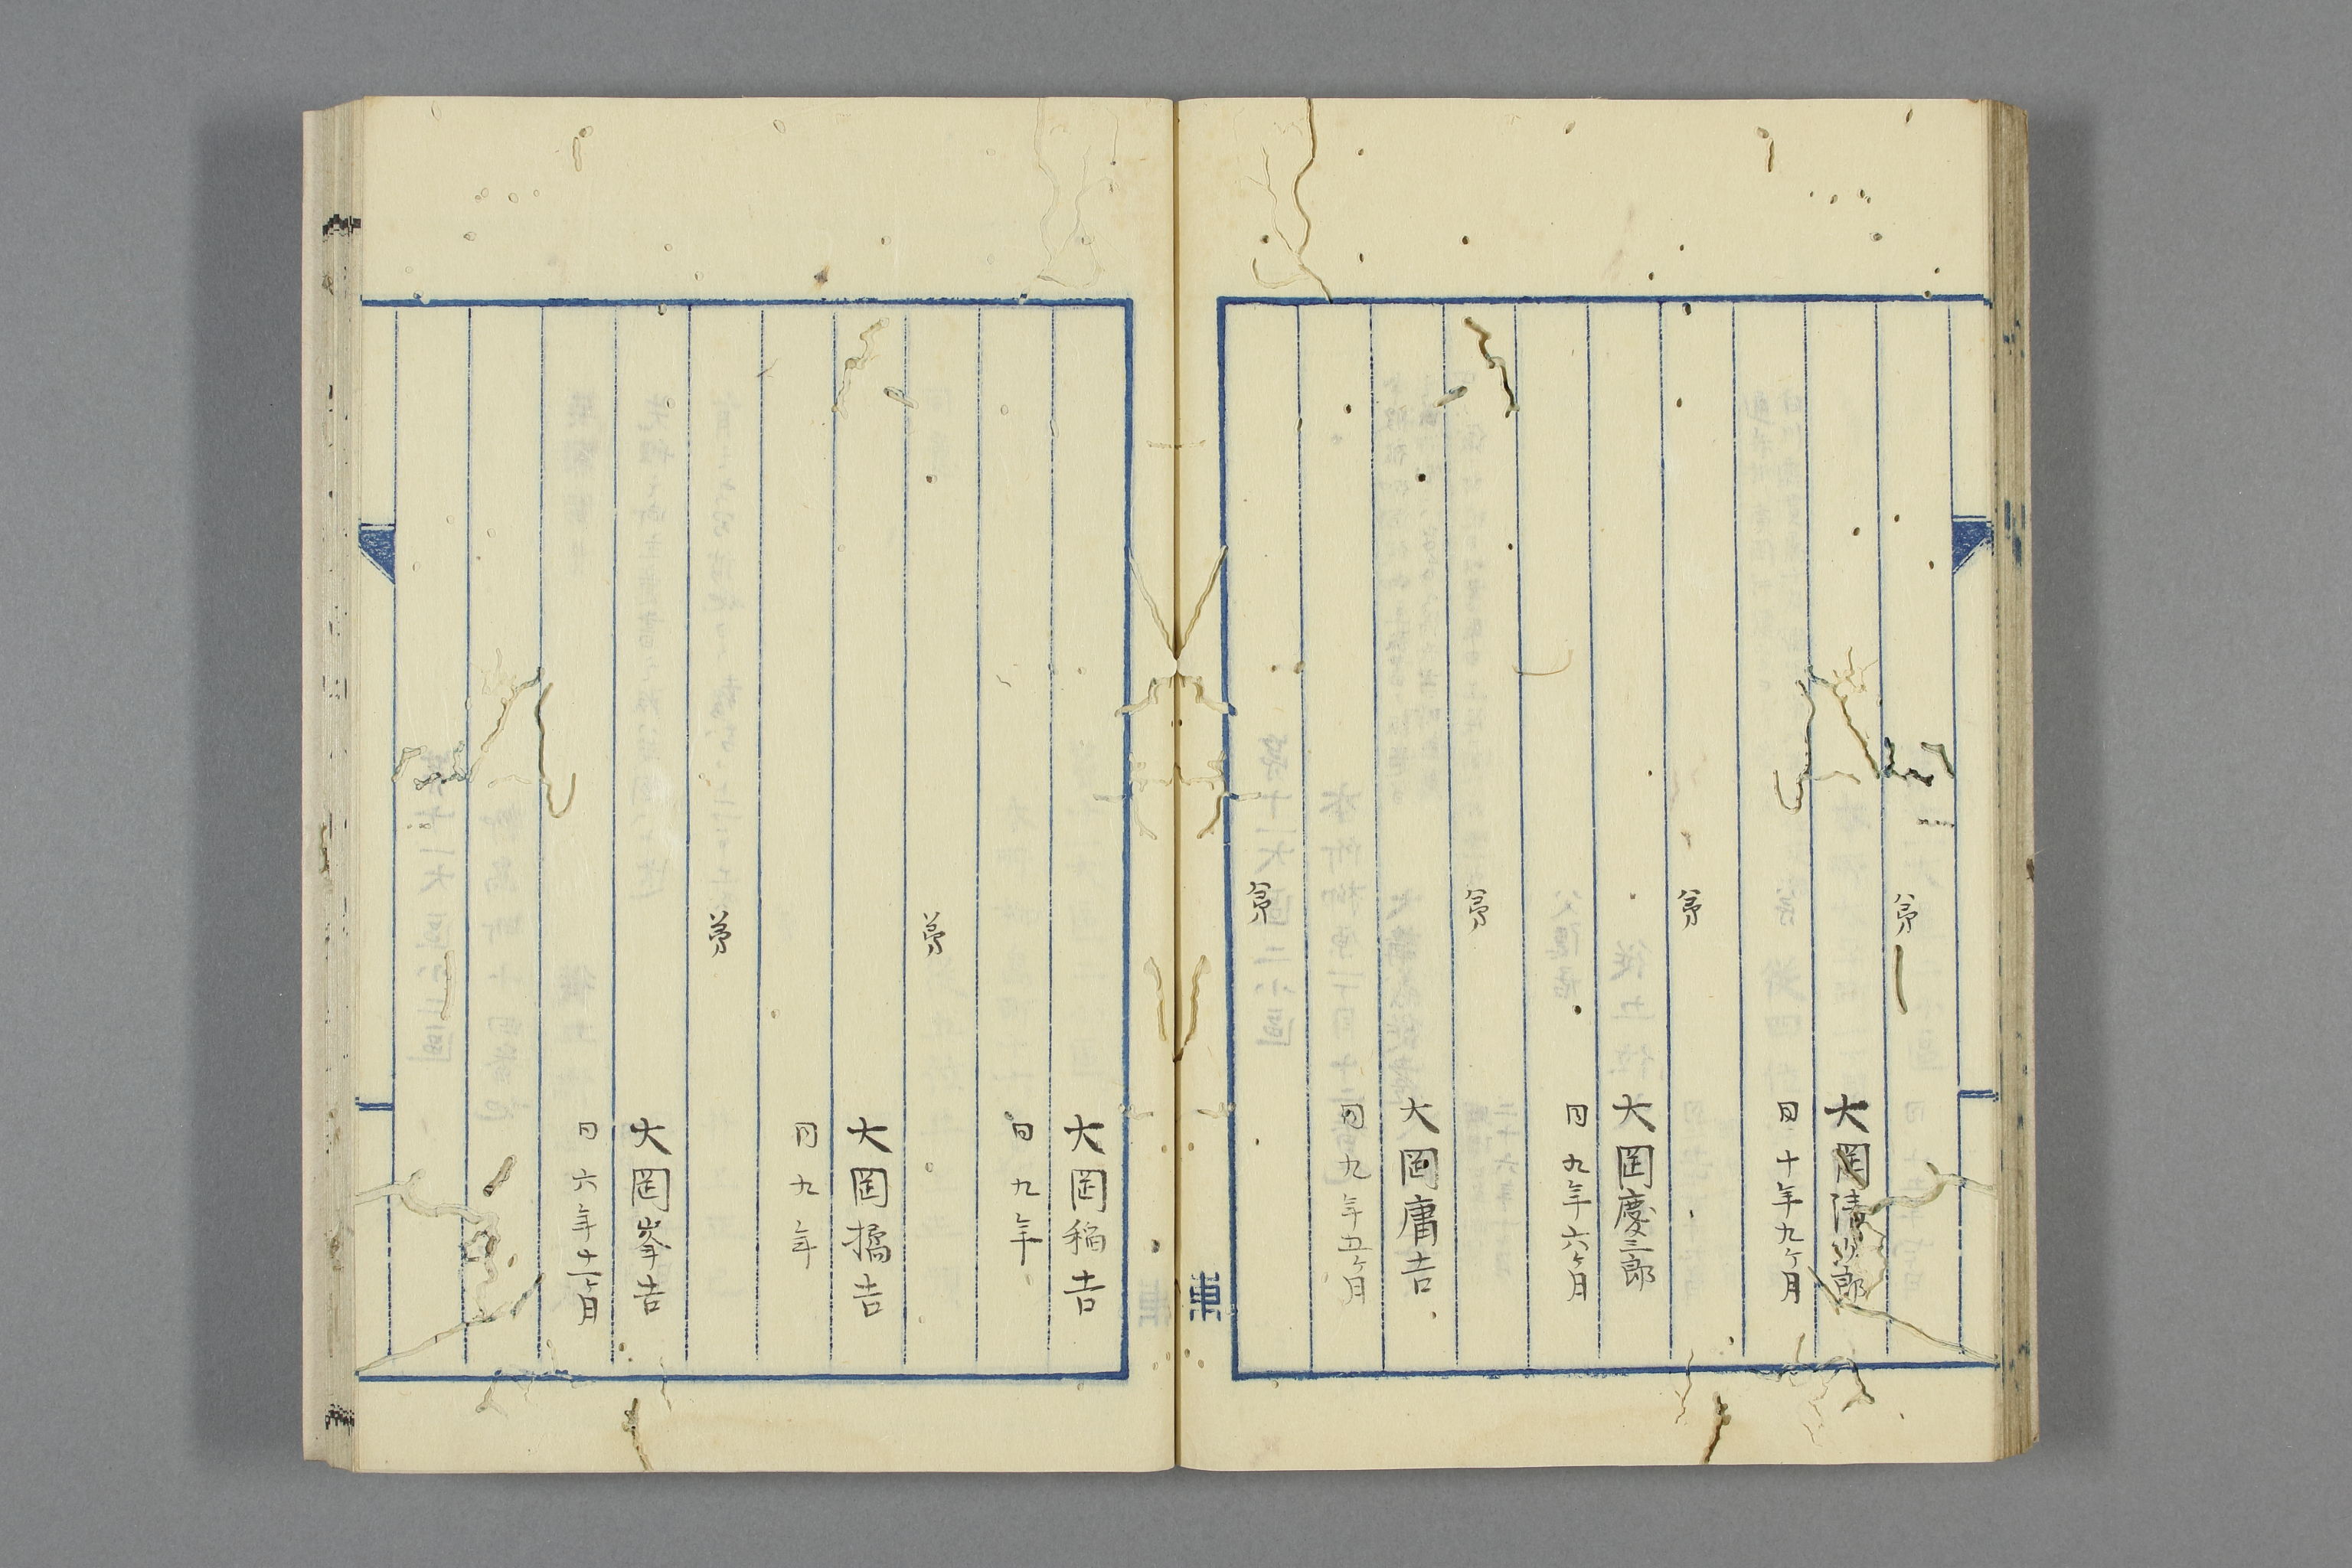 弟
大岡清次郎
同十年九ヶ月
弟
大岡慶三郎
同九年六ヶ月
弟
大岡庸吉
同九年五ヶ月
弟
東
大岡稲吉
同九年
弟
大岡橘吉
同九年
弟
大岡峯吉
同六年十一ヶ月